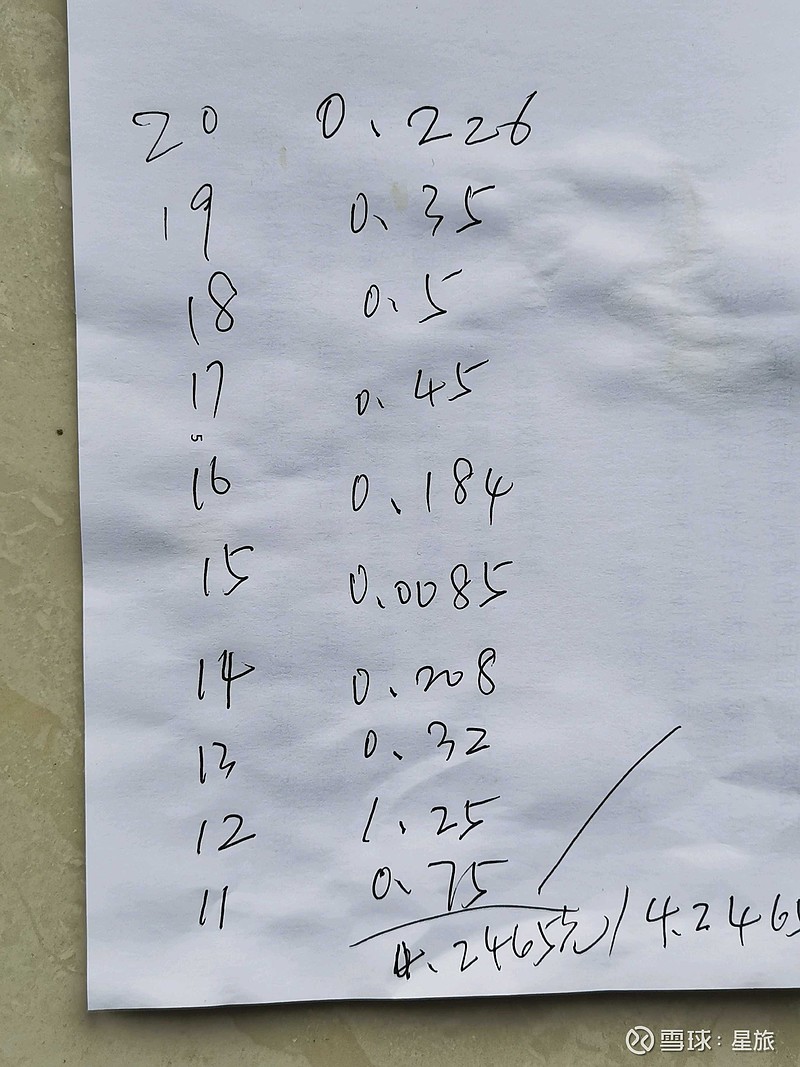 20 0.226
19 0.35
18 0.5
17 0.45
5
16 0.184
15 0.0085
14 0.208
13 0.32
12 1.25
11 0.75
4.2465元/4.2465
雪球：星旅